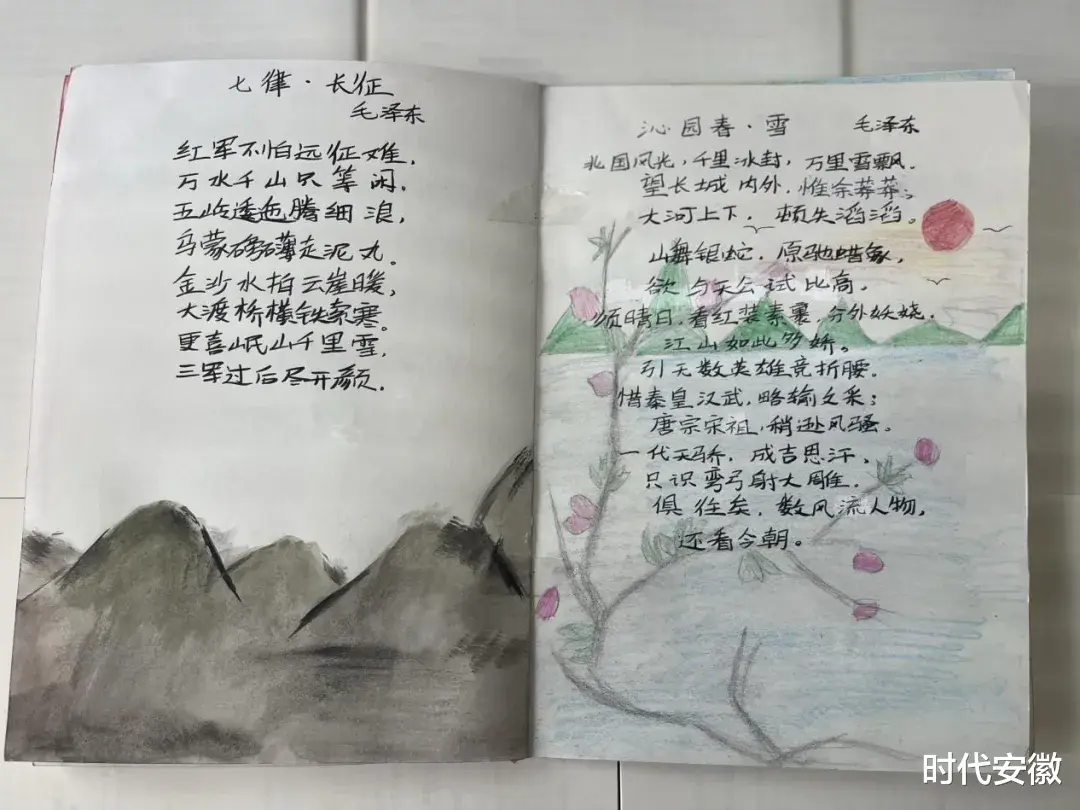 七律·长征
毛泽东
红军不怕远征难，
万水千山只等闲。
五岭逶迤腾细浪，
乌蒙磅礴走泥丸。
金沙水拍云崖暖，
大渡桥横铁索寒。
更喜岷山千里雪，
三军过后尽开颜。
沁园春·雪 毛泽东
北国风光，千里冰封，万里雪飘。
望长城内外，惟余莽莽；
大河上下，顿失滔滔。
山舞银蛇，原驰蜡象，
欲与天公试比高。
须晴日，看红装素裹，分外妖娆。
江山如此多娇。
引无数英雄竞折腰。
惜秦皇汉武，略输文采；
唐宗宋祖，稍逊风骚。
一代天骄，成吉思汗，
只识弯弓射大雕。
俱往矣，数风流人物，
还看今朝。
时代安徽